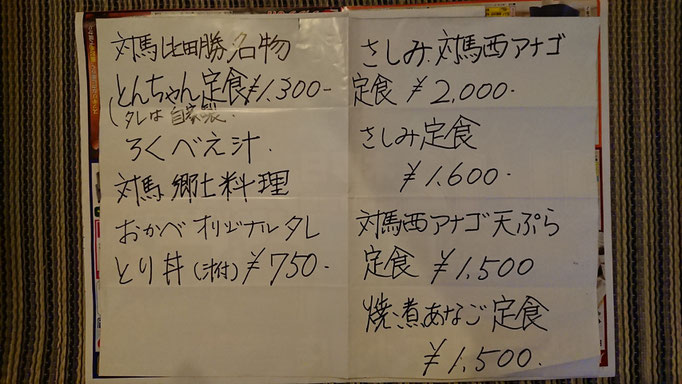 対馬比田勝名物
とんちゃん定食¥1.300-
タレは自家製.
ろくべえ汁.
対馬郷土料理
おかべオリジナルタレ
とり丼(汁付)¥750-
さしみ.対馬西アナゴ
定食 ¥2,000.
さしみ定食
¥1.600.
対馬西アナゴ天ぷら
定食 ¥1,500
焼.煮あなご定食
¥1,500.